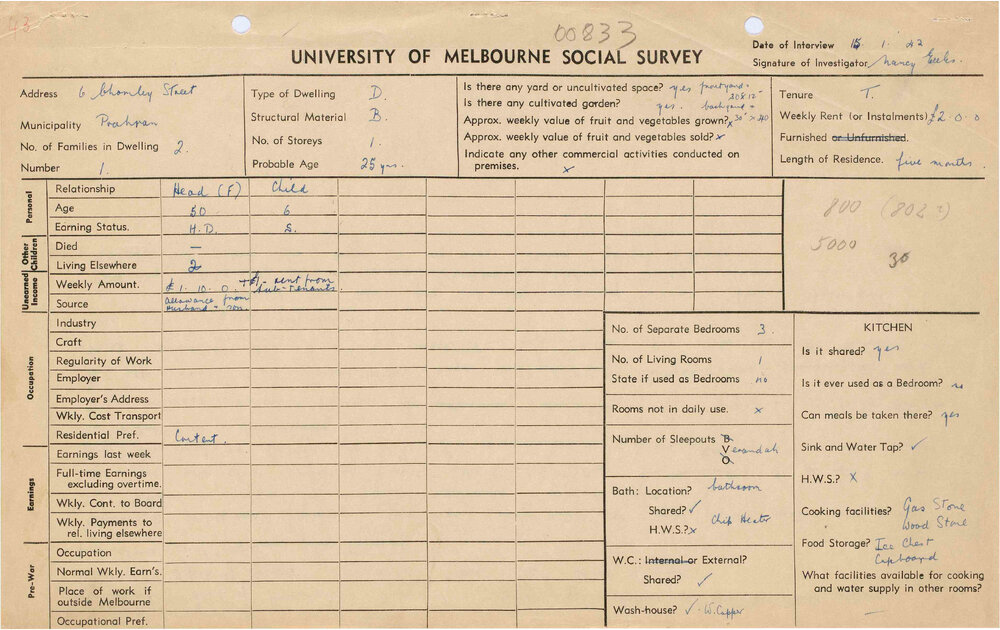 43
00833
UNIVERSITY OF MELBOURNE SOCIAL SURVEY
Date of Interview 15 . 1 . 42
Signature of Investigator Nancy
Address 6 Chomley Street
Municipality Prahran
No. of Families in Dwelling 2.
Number 1.
Type of Dwelling D.
Structural Material B.
No. of Storeys 1.
Probable Age 25 yrs.
Is there any yard or uncultivated space? yes
Is there any cultivated garden? yes. backyard
Approx. weekly value of fruit and vegetables grown? x
Approx. weekly value of fruit and vegetables sold? x
Indicate any other commercial activities conducted on
premises. x
Tenure T.
Weekly Rent (or Instalments) £2. 0. 0
Furnished or Unfurnished.
Length of Residence. five months.
Personal
Relationship Head (F) Child
Age 50 6
Earning Status. H.D. S.
Other Children
Died —
Living Elsewhere 2
Unearned Income
Weekly Amount. £1. 10. 0. rent from sub-tenants.
Source allowance from husband + son
800 (808?)
5000
30
Occupation
Industry
Craft
Regularity of Work
Employer
Employer's Address
Wkly. Cost Transport
Residential Pref. Content.
Earnings
Earnings last week
Full-time Earnings
excluding overtime.
Wkly. Cont. to Board
Wkly. Payments to
rel. living elsewhere
Pre-War
Occupation
Normal Wkly. Earn's.
Place of work if
outside Melbourne
Occupational Pref.
No. of Separate Bedrooms 3.
No. of Living Rooms 1
State if used as Bedrooms no
Rooms not in daily use. x
Number of Sleepouts B
Verandah
O
Bath: Location? bathroom
Shared? ✓
H.W.S.? x Chip Heater
W.C.: Internal or External?
Shared? ✓
Wash-house? ✓ W. Copper
KITCHEN
Is it shared? yes
Is it ever used as a Bedroom? no
Can meals be taken there? yes
Sink and Water Tap? ✓
H.W.S.? X
Cooking facilities? Gas Stove
Wood Stove
Food Storage? Ice Chest
Cupboard
What facilities available for cooking
and water supply in other rooms?
—